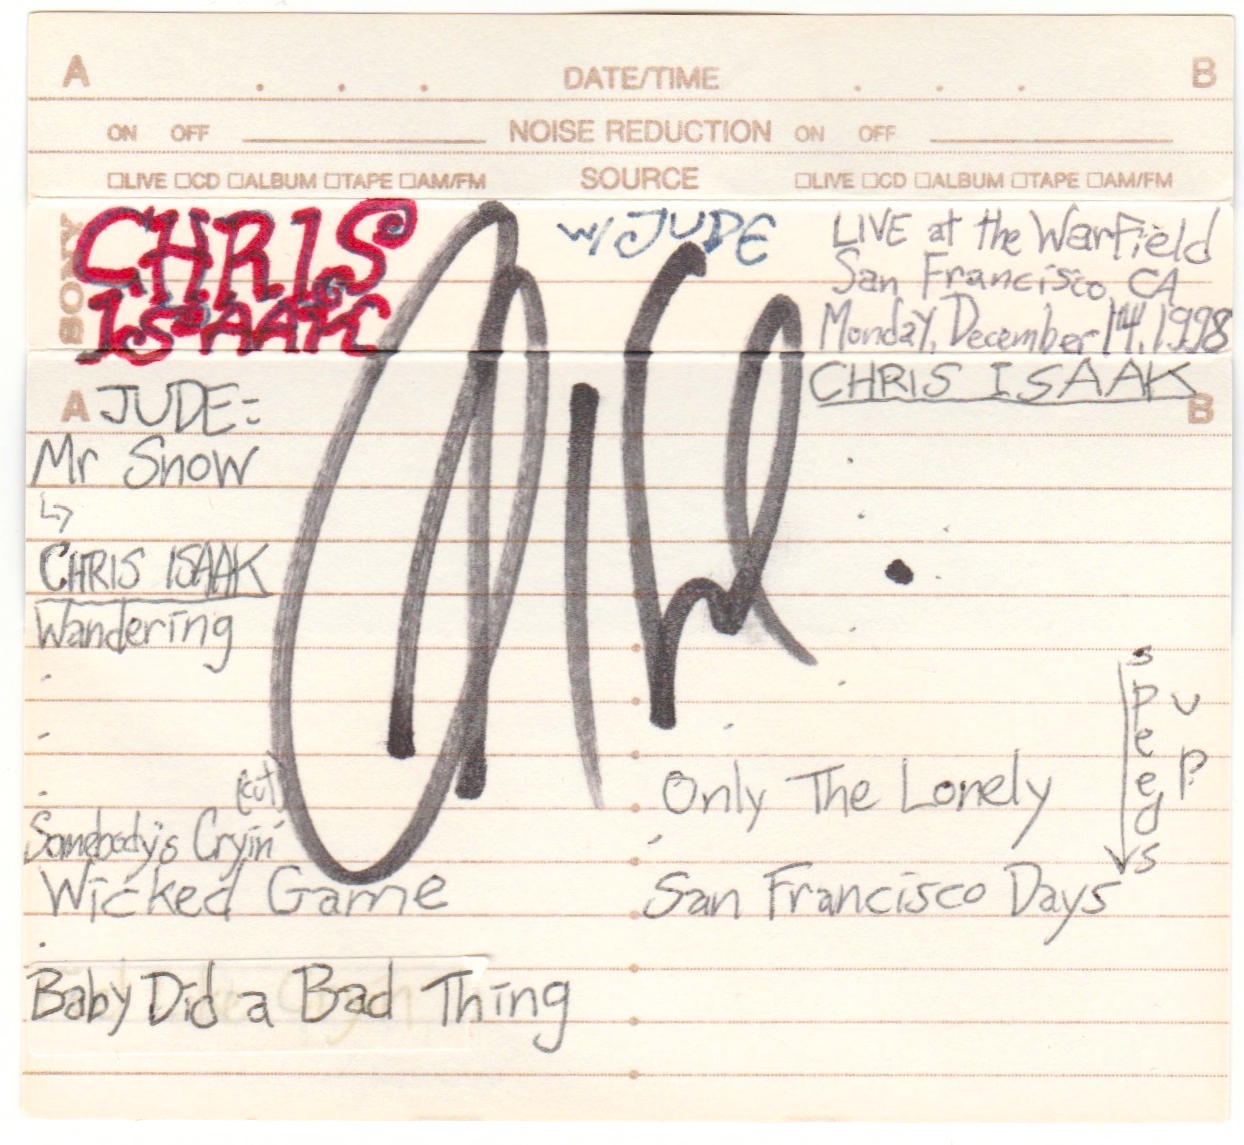 A DATE/TIME B
ON OFF NOISE REDUCTION ON OFF
LIVE CD ALBUM TAPE AM/FM SOURCE LIVE CD ALBUM TAPE AM/FM
SONY
CHRIS
ISAAK
w/ JUDE
LIVE at the Warfield
San Francisco, CA
Monday, December 14, 1998
A JUDE:
Mr Snow
CHRIS ISAAK
Wandering
(cut)
Somebody's Cryin'
Wicked Game
Baby Did a Bad Thing
CHRIS ISAAK
B
Only The Lonely
San Francisco Days
speeds
up